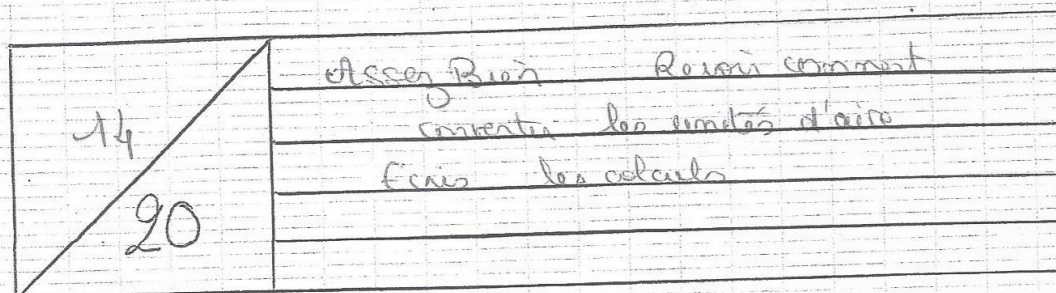 14
20
Assez Bien Revoir comment
convertir les unités d'aire
Ecris les calculs